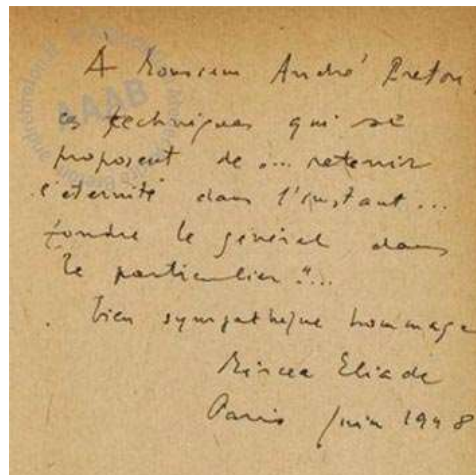 À Monsieur André Breton
ces techniques qui se
proposent de... retenir
l'éternité dans l'instant...
fondre le général dans
le particulier"...
bien sympathique hommage
Mircea Eliade
Paris juin 1948
AAAB